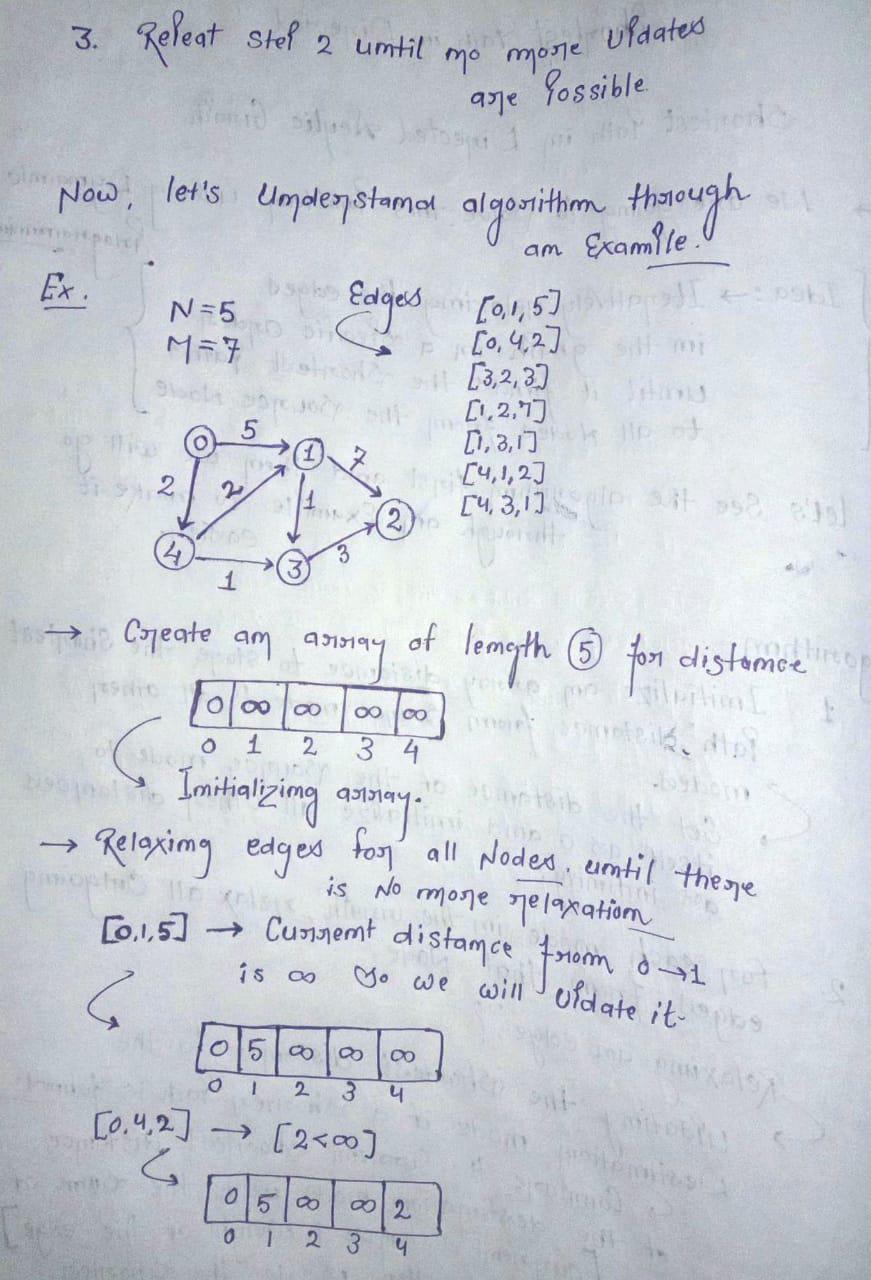 3. Repeat step 2 until no more updates
are possible.
Now, let's understand algorithm through
an Example.
Ex.
N=5
M=7
Edges
[0,1,5]
[0,4,2]
[3,2,3]
[1,2,7]
[1,3,1]
[4,1,2]
[4,3,1]
0 5 1 7
2 2 1 2
4 1 3 3
→ Create an array of length 5 for distance
0 ∞ ∞ ∞ ∞
0 1 2 3 4
Initializing array.
→ Relaxing edges for all Nodes. until there
is No more relaxation
[0,1,5] → Current distance from 0→1
is ∞ so we will update it.
0 5 ∞ ∞ ∞
0 1 2 3 4
[0,4,2] → [2<∞]
0 5 ∞ ∞ 2
0 1 2 3 4